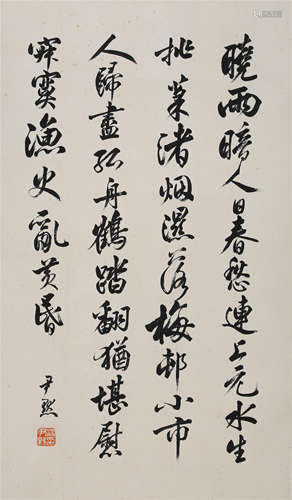 曉雨暗人日春愁連上元水生
挑菜渚烟濕落梅邨小市
人歸盡孤舟鶴踏翻猶堪慰
寂寞漁火亂黃昏
尹默